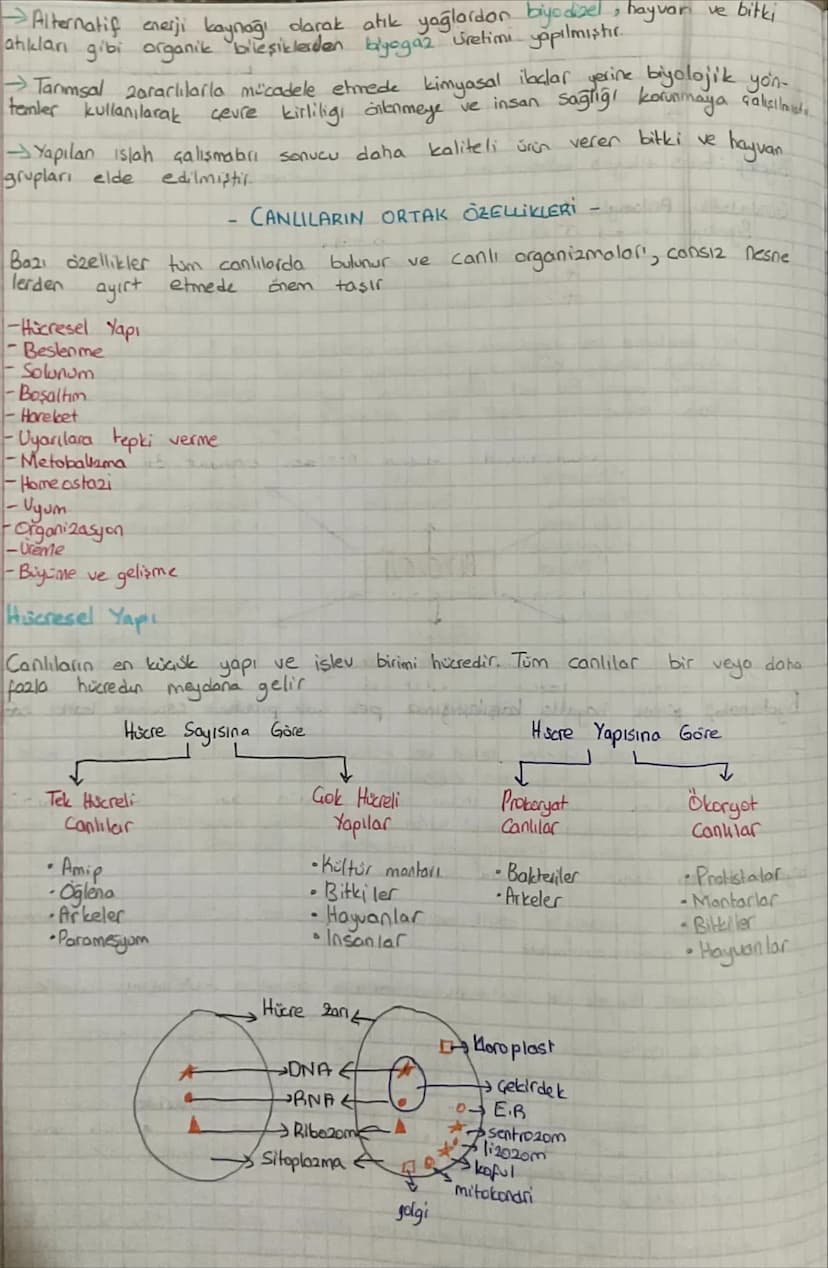 → Alternatif enerji kaynağı olarak atık yağlardan biyodizel, hayvan ve bitki
atıkları gibi organik bileşiklerden biyogaz üretimi yapılmıştır.
→ Tarımsal zararlılarla mücadele etmede kimyasal ilaçlar yerine biyolojik yön-
temler kullanılarak çevre kirliliği önlenmeye ve insan sağlığı korunmaya
→ Yapılan ıslah çalışmaları sonucu daha kaliteli ürün veren bitki ve hayvan
grupları elde edilmiştir.
- CANLILARIN ORTAK ÖZELLİKLERİ -
Bazı özellikler tüm canlılarda bulunur ve canlı organizmaları, cansız nesne
lerden ayırt etmede önem taşır
- Hücresel Yapı
- Beslenme
- Solunum
- Boşaltım
- Hareket
- Uyarılara tepki verme
- Metobalizma
- Homeostazi
- Uyum
- Organizasyon
- Üreme
- Büyüme ve gelişme
Hücresel Yapı
Canlıların en küçük yapı ve işlev birimi hücredir. Tüm canlılar bir veya daha
fazla hücreden meydana gelir
Hücre Sayısına Göre
Hücre Yapısına Göre
Tek Hücreli
Canlılar
Çok Hücreli
Yapılar
Prokaryat
Canlılar
Ökaryot
Canlılar
• Amip
• Öglena
• Arkeler
• Paramesyum
• Kültür mantarı
• Bitkiler
• Hayvanlar
• İnsanlar
• Bakteriler
• Arkeler
• Protistalar
• Mantarlar
• Bitkiler
• Hayvanlar
Hücre zarı
DNA
RNA
Ribozom
Sitoplazma
kloroplast
Çekirdek
E.R
sentrozom
lizozom
koful
mitokondri
golgi